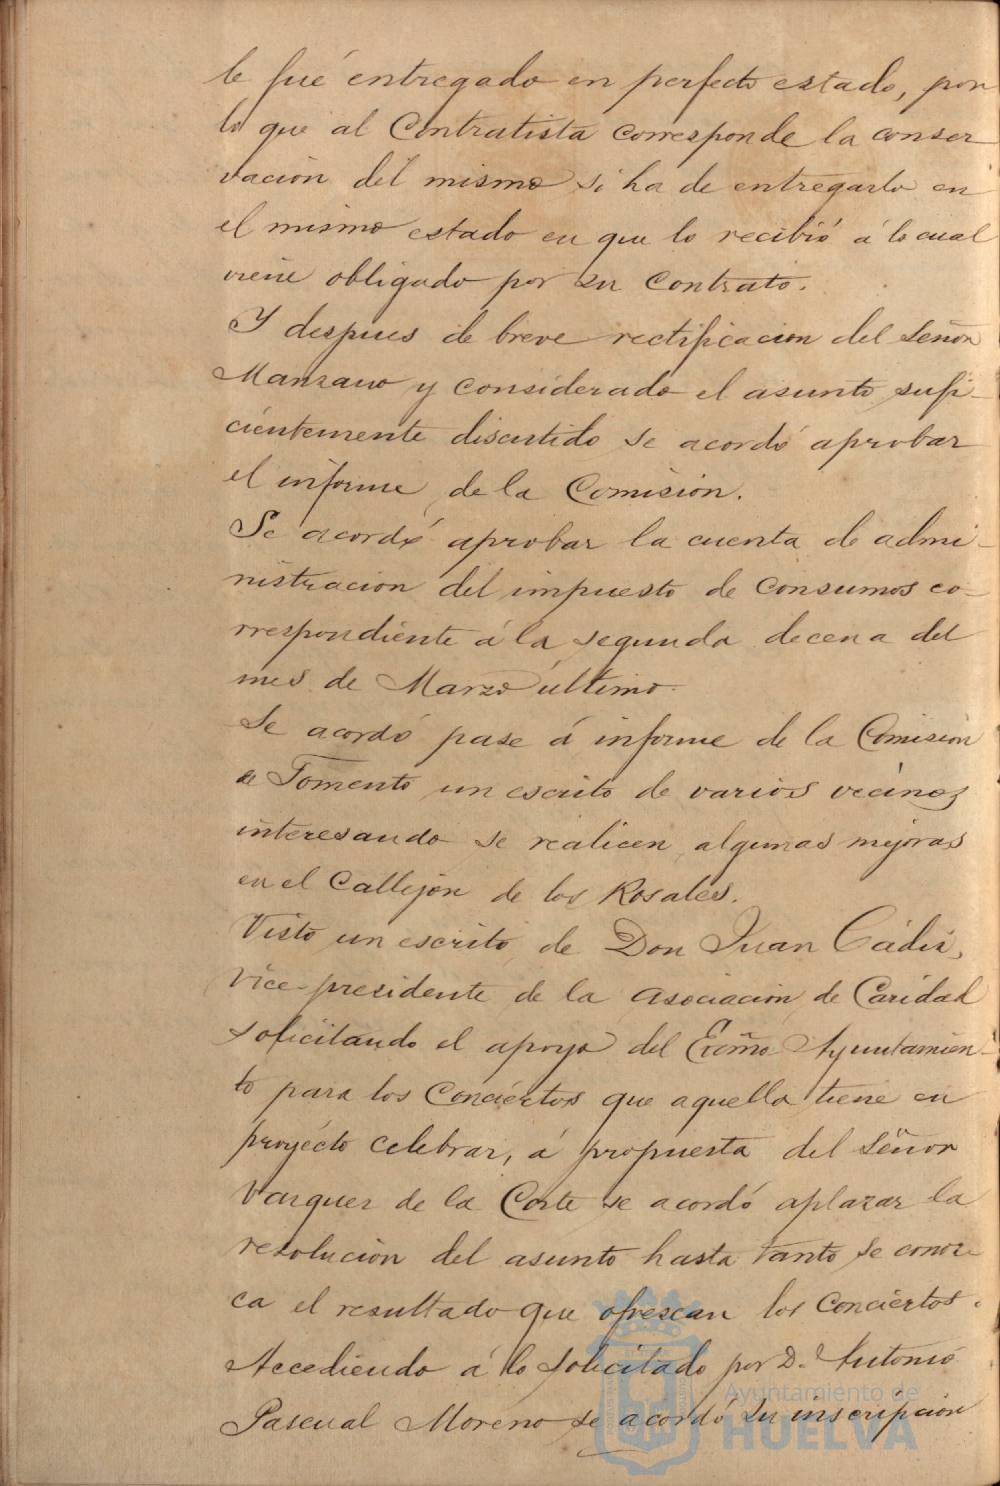 le fué entregado en perfecto estado, por
lo que al Contratista corresponde la conser
vación del mismo si ha de entregarlo en
el mismo estado en que lo recibió á lo cual
viene obligado por su Contrato.
Y despues de breve rectificacion del Señor
Manzano y considerado el asunto sufi-
cientemente discutido se acordó aprobar
el informe de la Comisión.
Se acordó aprobar la cuenta de admi-
nistracion del impuesto de Consumos co-
rrespondiente á la segunda decena del
mes de Marzo último.
Se acordó pase á informe de la Comisión
de Fomento un escrito de varios vecinos
interesando se realicen algunas mejoras
en el Callejón de los Rosales.
Visto un escrito de Don Juan Cádiz,
Vice-presidente de la Asociación de Caridad
solicitando el apoyo del Excmo Ayuntamien-
to para los Conciertos que aquella tiene en
proyécto celebrar, á propuesta del Señor
Vazquez de la Corte se acordó aplazar la
resolución del asunto hasta tanto se conoz-
ca el resultado que ofrezcan los Conciertos.
Accediendo á lo solicitado por D. Antonio
Pascual Moreno se acordó su inscripción
Ayuntamiento de
HUELVA